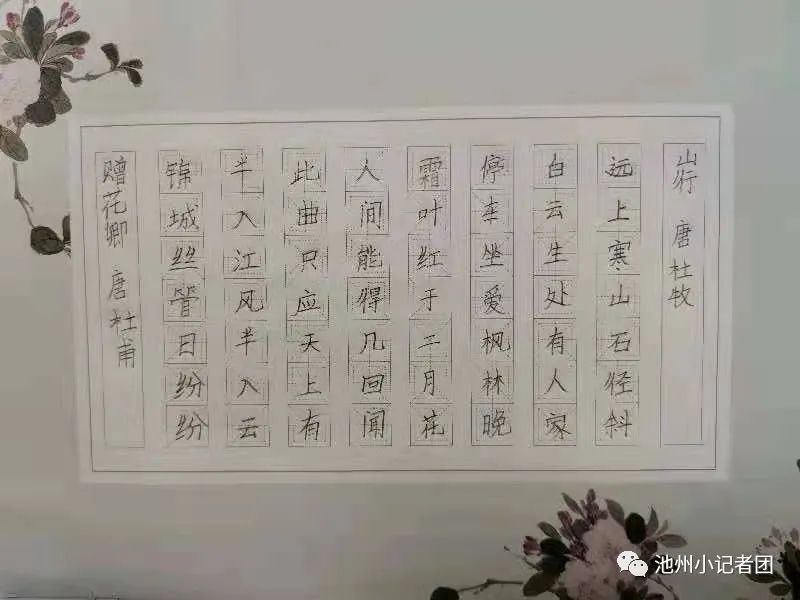 山行 唐 杜牧
远上寒山石径斜
白云生处有人家
停车坐爱枫林晚
霜叶红于二月花
赠花卿 唐 杜甫
锦城丝管日纷纷
半入江风半入云
此曲只应天上有
人间能得几回闻
池州小记者团